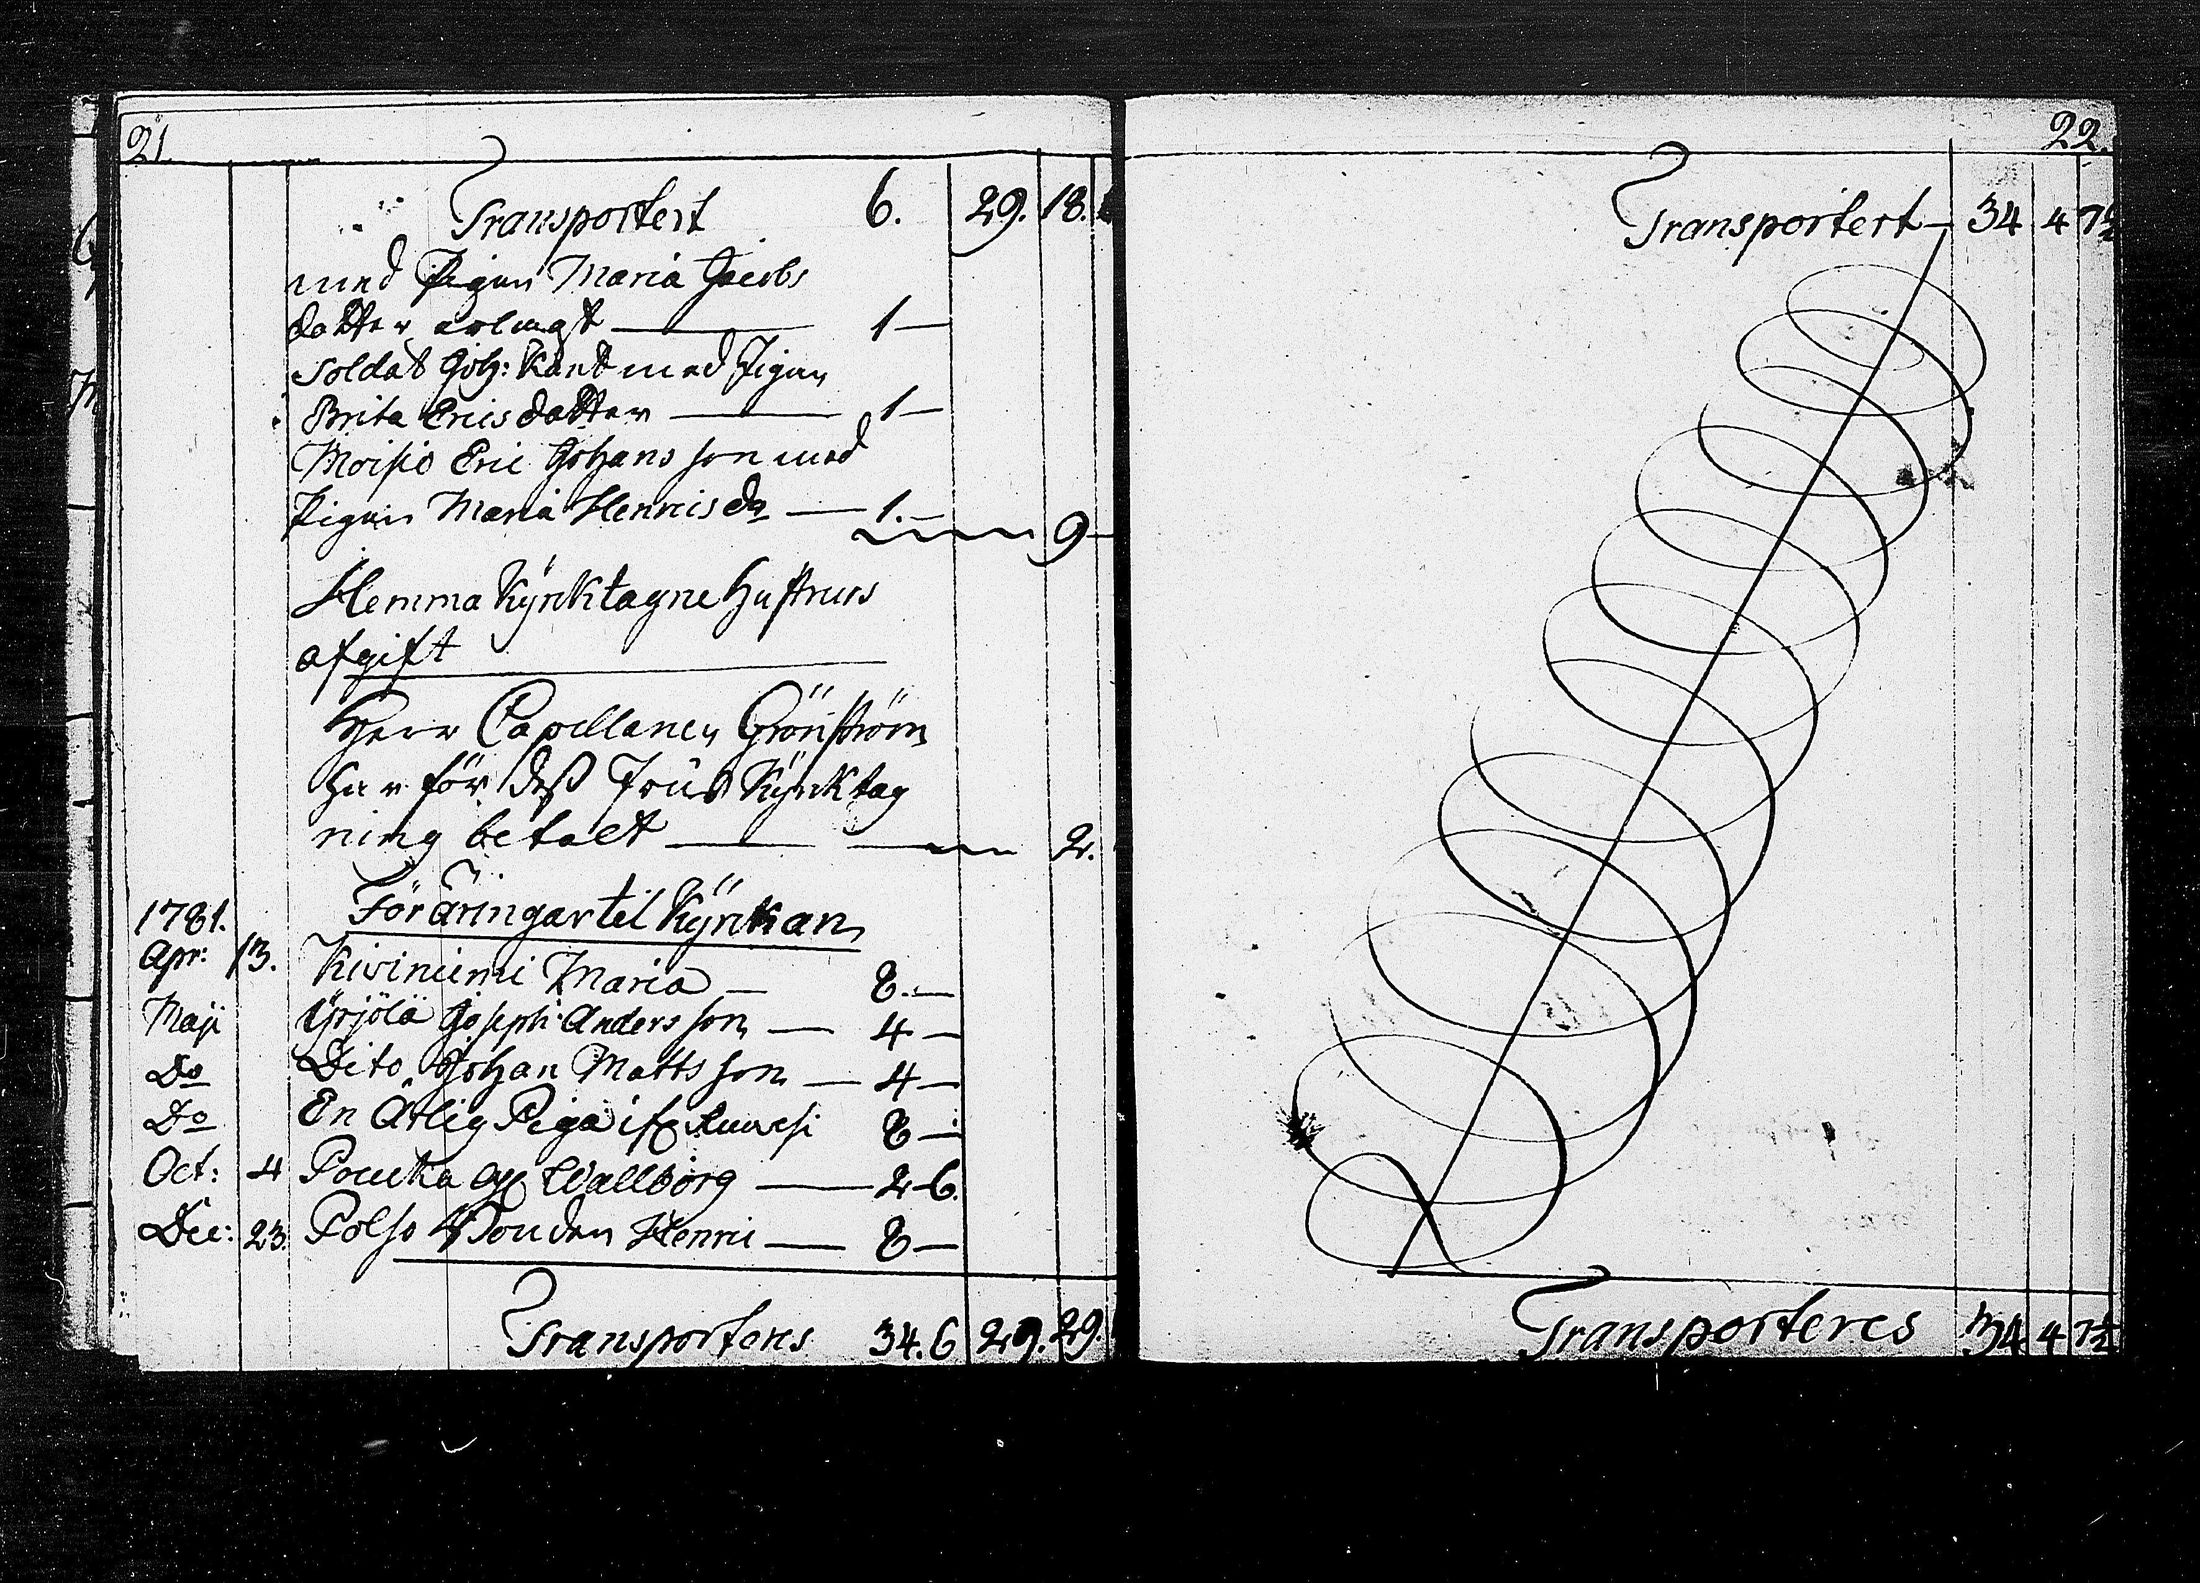 21.
Transportert 6. 29. 18.
med Pigan Maria Jacobs
dotter erlagt — 1 —
Soldat Joh: Kant med Pigan
Brita Erics dotter — 1 —
Moisio Eric Johans son med
Pigan Maria Henrics da — 1. — 9 —
Hemma Kÿrktagne Hustrurs
afgift
Herr Capellanen Grönström
har för dess Frus Kÿrktag
ning betalt — 2.
1781. Föräringar til Kÿrkan
Apr: 13. Kiviniemi Maria — 8. —
Maji Yrjölä Joseph Anders son — 4 —
Do Dito Johan Matts son — 4 —
Do En Ärlig Piga if — 8 —
Oct: 4 Poucka Wallborg — 2 6.
Dec: 23. Polso Henric — 8 —
Transporteres 34. 6 29. 29.
22.
Transportert — 34 4 7½
Transporteres 34 4 7½